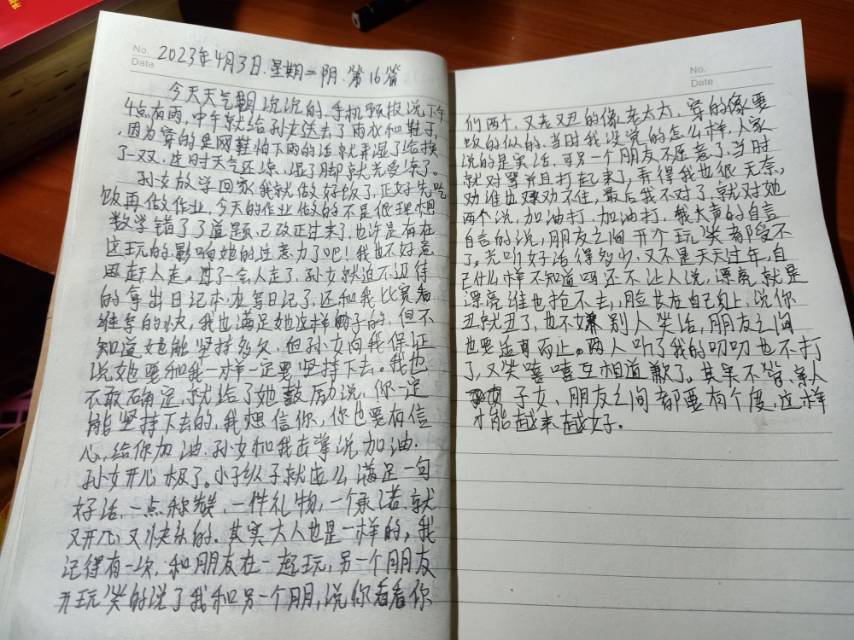 No.
Date
2023年4月3日.星期一阴.第16篇
今天天气朝说说的.手机预报说下午
4点有雨,中午就给孙女送去了雨衣和鞋子,
,因为穿的是网鞋怕下雨的话就弄湿了给换
了一双,这时天气还凉,湿了脚就太受凉了。
孙女放学回家我就做好饭了,正好先吃
饭再做作业,今天的作业做的不是很理想
数学错了了道题,已改正过来了,也许是有在
这玩的影响她的注意力了吧!我也不好意
思赶人走。过了一会人走了,孙女就迫不及待
的拿出日记本来写日记了,还和我比赛看
谁写的快,我也满足她这样的,但不
知道她能坚持多久,但孙女向我保证
说她要和我一样一定要坚持下去。我也
不敢确定,就给了她鼓励说,你一定
能坚持下去的,我想信你,你也要有信
心,给你加油.孙女和我击掌说加油.
孙女开心极了。小孩子就这么满足一句
好话,一点和类,一件礼物,一个承诺,就
又开心又快乐的.其实大人也是一样的,我
记得有一次,和朋友在一起玩,另一个朋友
开玩笑的说了我和另一个朋,说你看看你
No.
Date
们两个,又老又丑的像老太太,穿的像要
饭的似的,当时我没说的怎么样,人家
说的是实话,可另一个朋友不愿意了,当时
就对骂并且打起来了,弄得我也很无奈,
劝谁也劝不住,最后我不对了,就对她
两个说,加油打,加油打,我大黄的自言
自言的说,朋友之间开个玩笑都受不
了,去听好话得多少,又不是天天过年,自
己什么样不知道吗还不让人说,漂亮就是
漂亮谁也抢不去,脸长在自己身上,说你
丑就丑了,也不嫌别人笑话,朋友之间
也要适可而止。两人听了我的叨叨也不打
了,又笑嘻嘻互相道歉了。其果不管,亲人
子女、朋友之间都要有个度,这样
才能越来越好.